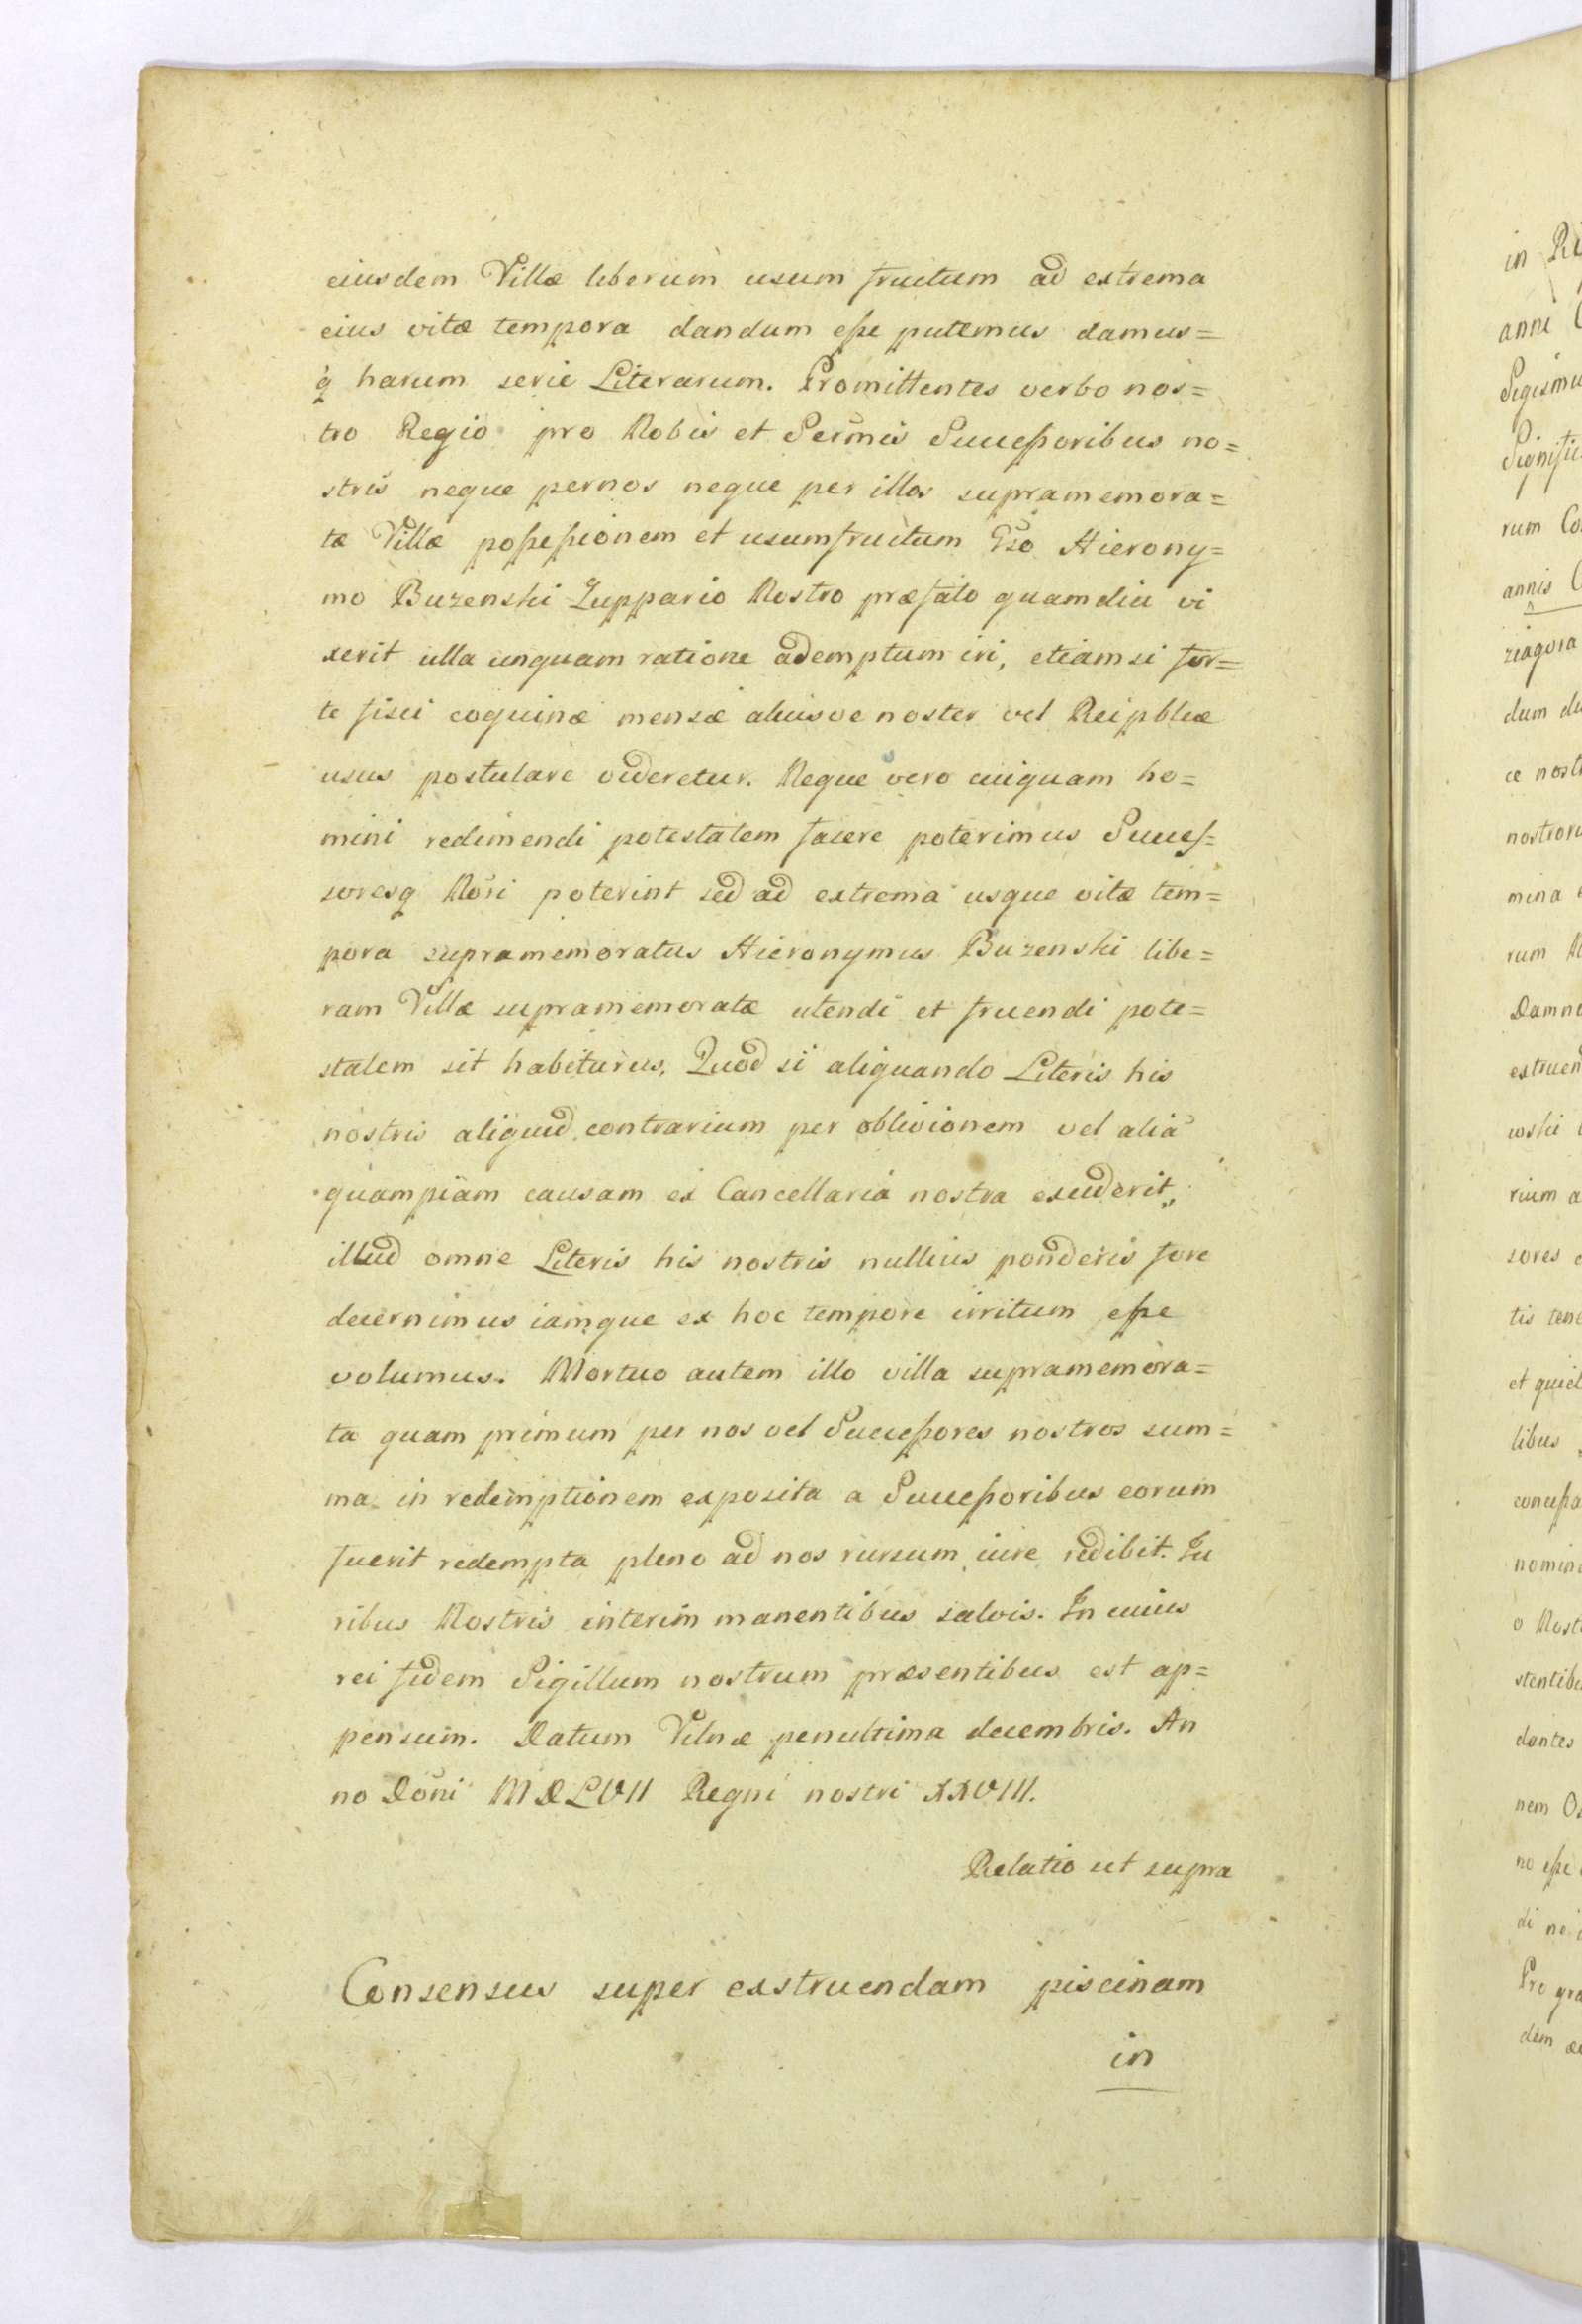 eiusdem Villæ liberum usum fructum ad extrema
eius vitæ tempora dandum eſse putemus damus=
q̃ harum serie Literarum. Promittentes verbo nos=
tro Regio pro Nobis et Sermis Succeſsoribus no=
stris neque pernos neque per illos supramemora=
tæ Villæ poſseſsionem et usumfructum Gso Hierony=
mo Buzenski Zuppario Nostro præfato quamdiu vi
xerit ulla unquam ratione ademptum iri, etiamsi for=
te fisci coquinæ mensæ aliusve noster vel Reipblcæ
usus postulare videretur. Neque vero cuiquam ho=
mini redimendi potestatem facere poterimus Succeſ=
soresq Nori poterint sed ad extrema usque vitæ tem=
pora supramemoratus Hieronymus Buzenski libe=
ram Villæ supramemoratæ utendi et fruendi pote=
statem sit habiturus, Quod si aliquando Literis his
nostris aliquid contrarium per oblivionem vel alia
quampiam causam ex Cancellaria nostra exciderit,
illud omne Literis his nostris nullius ponderis fore
decernimus iamque ex hoc tempore irritum eſse
volumus. Mortuo autem illo villa supramemora=
ta quam primum per nos vel Succeſsores nostros sum=
ma in redemptionem exposita a Succeſsoribus eorum
fuerit redempta pleno ad nos rursum iure redibit. Iu
ribus Nostris interim manentibus salvis. In cuius
rei fidem Sigillum nostrum præsentibus est ap=
pensum. Datum Vilnæ penultima decembris. An
no Doni MDLVII Regni nostri XXVIII.
Relatio ut supra
Consensus super exstruendam piscinam
in
in
anni
rum
annis
ziagora
dum
ce
mina
rum
rium a
sores
tis
libus
dantes
nem
no eſse
di
dem